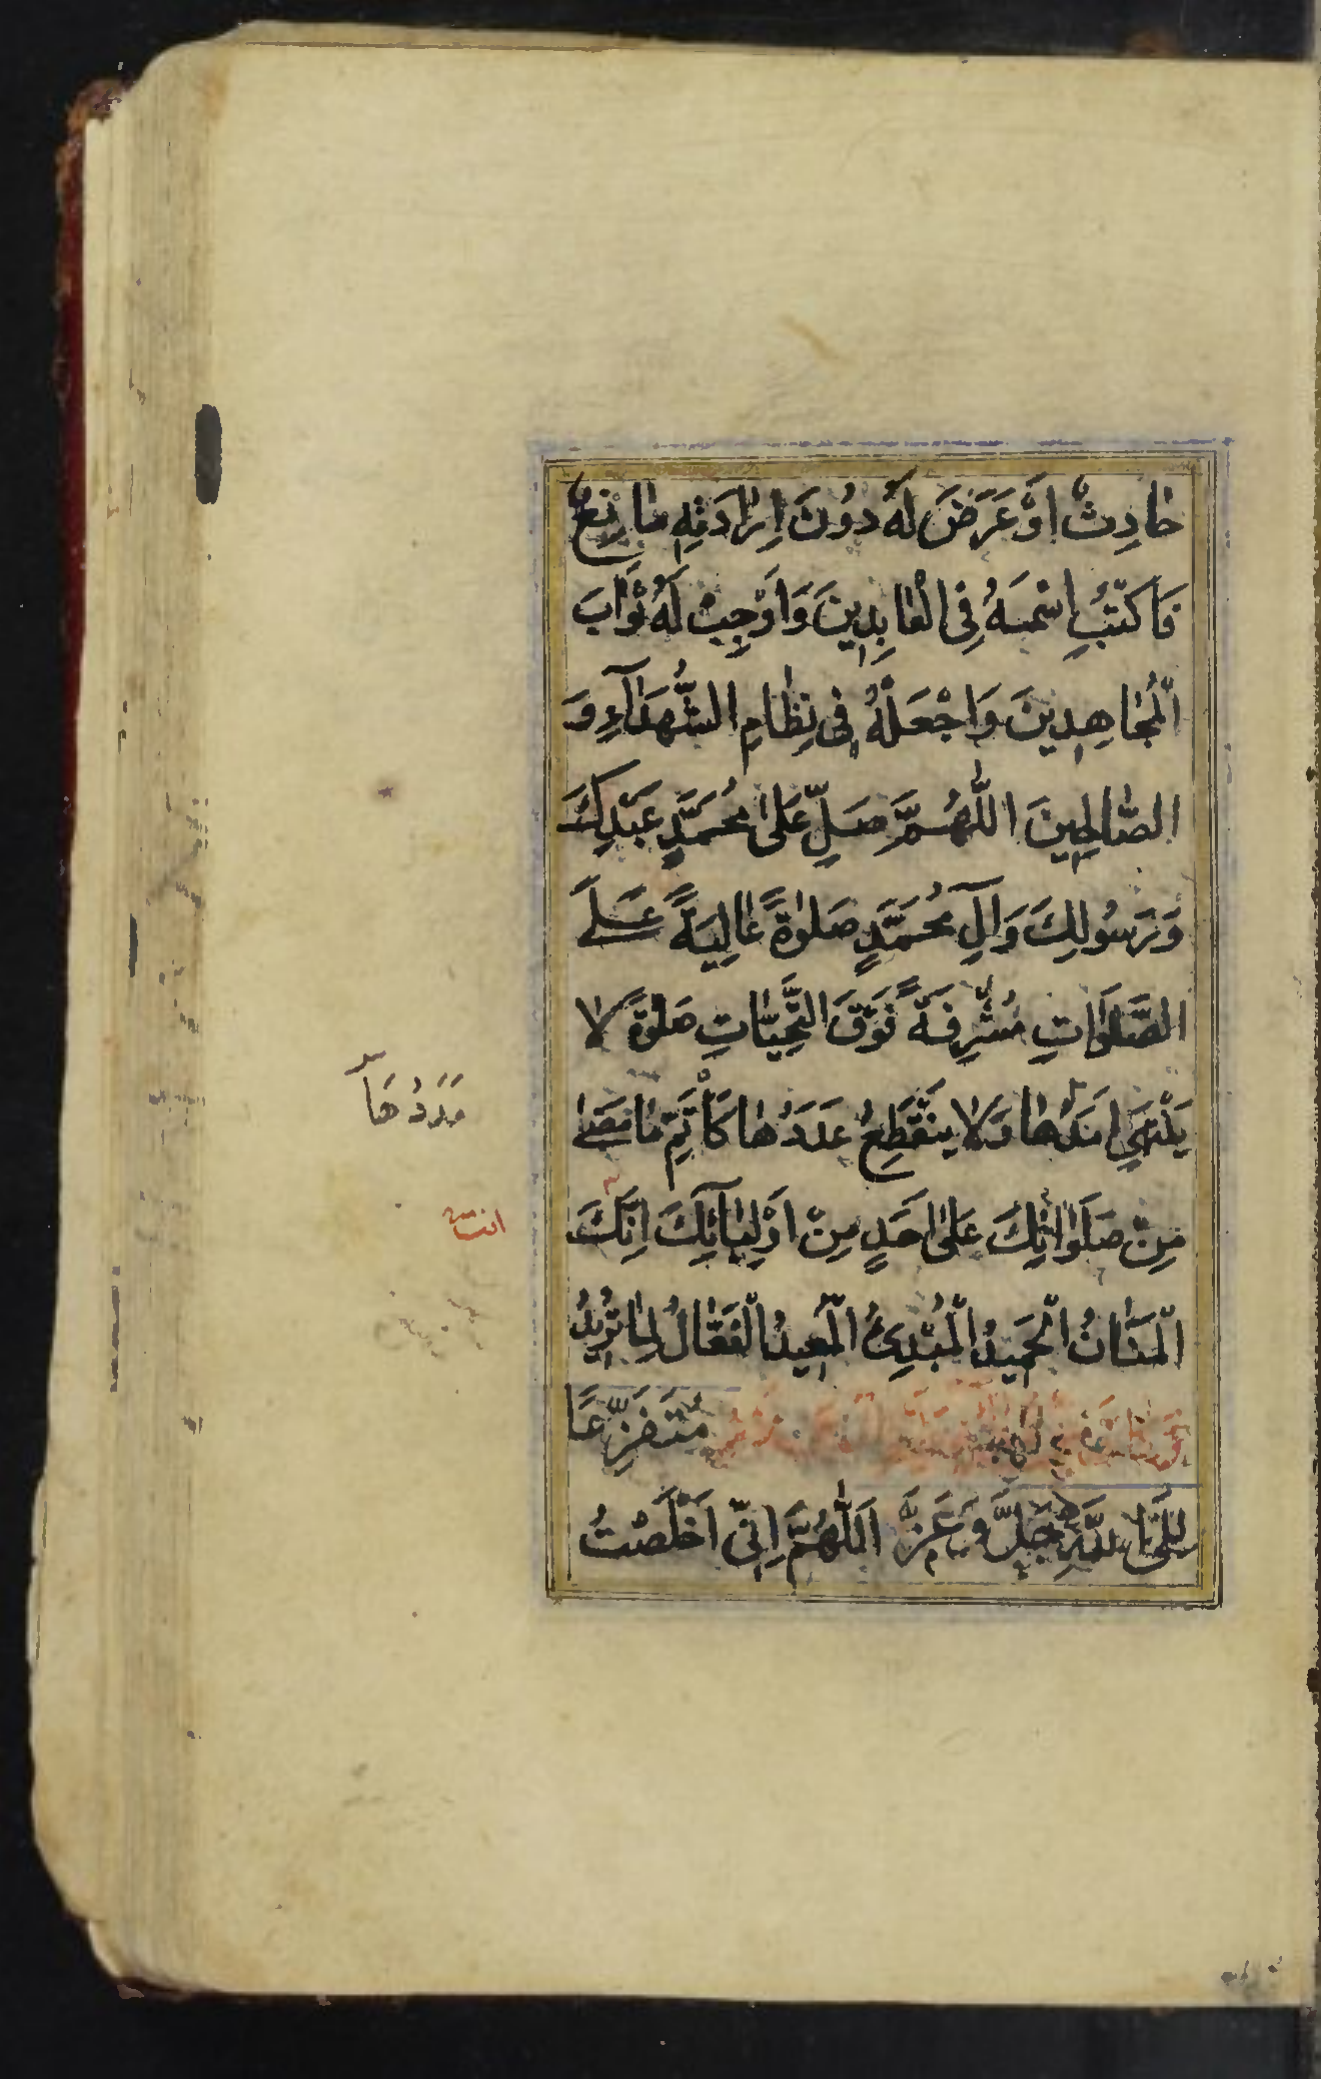 حٰادِثٌ اَوْ عَرَضَ لَهُ دُونَ اِرٰادَتِهِ مٰانِعٌ
فَاكْتُبِ اسْمَهُ فِى الْعٰابِدِينَ وَاَوْجِبْ لَهُ ثَوٰابَ
الْمُجٰاهِدِينَ وَاجْعَلْهُ فِى نِظٰامِ الشُّهَدٰآءِ وَ
الصّٰالِحِينَ اَللّٰهُمَّ صَلِّ عَلىٰ مُحَمَّدٍ عَبْدِكَ
وَرَسُولِكَ وَآلِ مُحَمَّدٍ صَلوٰةً عٰالِيَةً عَلَى
الصَّلَوٰاتِ مُشْرِفَةً فَوْقَ التَّحِيّٰاتِ صَلوٰةً لٰا
يَنْتَهِى اَمَدُهٰا وَلٰا يَنْقَطِعُ عَدَدُهٰا كَاَتَمِّ مٰا مَضىٰ
مِنْ صَلَوٰاتِكَ عَلىٰ اَحَدٍ مِنْ اَوْلِيٰائِكَ اِنَّكَ
الْمَنّٰانُ الْحَمِيدُ الْمُبْدِئُ الْمُعِيدُ الْفَعّٰالُ لِمٰا تُرِيدُ
مُتَفَزِّعًا
اِلَى اللّٰهِ جَلَّ وَ عَزَّ اَللّٰهُمَّ اِنِّى اَخْلَصْتُ
مَدَدُهَا
انت